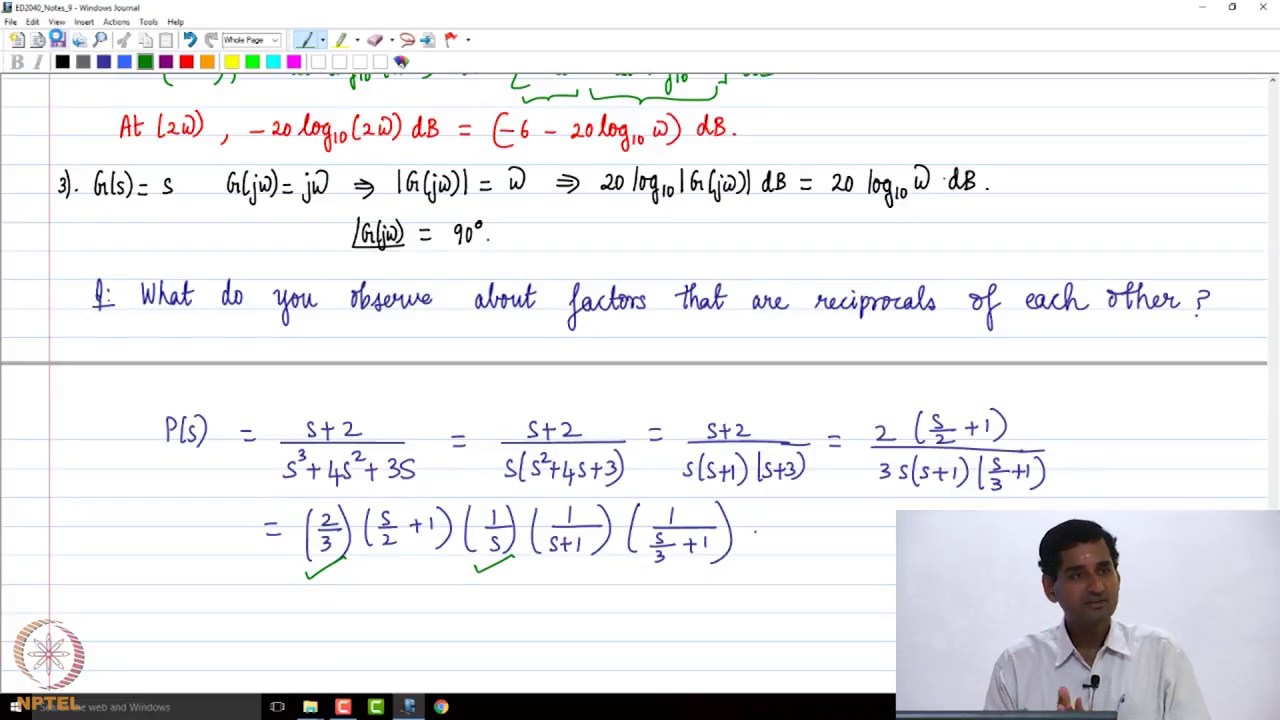 ED2040_Notes_9 - Windows Journal
File Edit View Insert Actions Tools Help
Whole Page
B I
At (2ω) , -20 log₁₀(2ω) dB = (-6 - 20 log₁₀ ω) dB.
3). G(s) = s G(jω) = jω ⇒ |G(jω)| = ω ⇒ 20 log₁₀|G(jω)| dB = 20 log₁₀ ω dB.
∠G(jω) = 90°.
Q: What do you observe about factors that are reciprocals of each other ?
P(s) = (s+2)/(s³+4s²+3s) = (s+2)/(s(s²+4s+3)) = (s+2)/(s(s+1)(s+3)) = 2(s/2 +1)/(3s(s+1)(s/3 +1))
= (2/3) (s/2 +1) (1/s) (1/(s+1)) (1/(s/3 +1)) .
NPTEL
Search the web and Windows